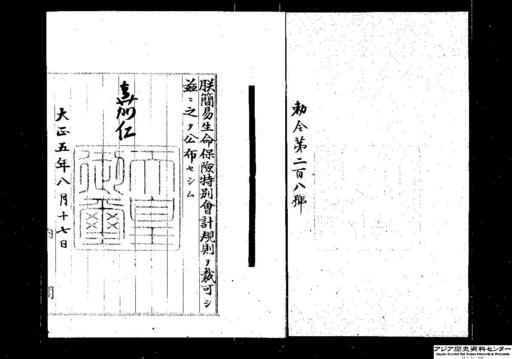 勅令第二百八號
朕簡易生命保險特別會計規則ヲ裁可シ
茲ニ之ヲ公布セシム
嘉仁
天皇御璽
大正五年八月十七日
内閣
アジア歴史資料センター
Japan Center for Asian Historical Records